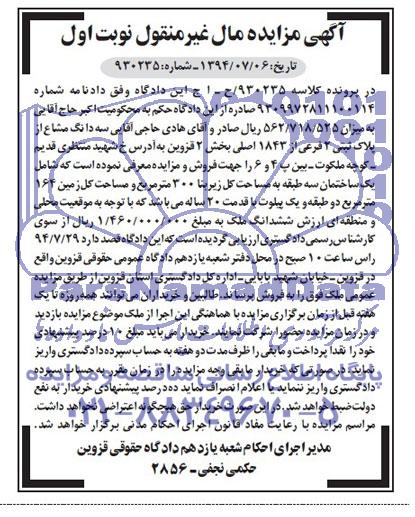 آگهی مزایده مال غیرمنقول نوبت اول
تاریخ: ۱۳۹۴/۰۷/۰۶ ــ شماره: ۹۳۰۲۳۵
در پرونده کلاسه ۹۳۰۲۳۵/ح ـ ا ج این دادگاه وفق دادنامه شماره
۹۳۰۹۹۷۲۸۱۱۱۰۰۱۱۴ صادره از این دادگاه حکم به محکومیت اکبر حاج آقایی
به میزان ۵۶۲/۷۱۸/۵۲۵ ریال صادر و آقای هادی حاجی آقایی سه دانگ مشاع از
پلاک ثبتی ۲ فرعی از ۱۸۴۳ اصلی بخش ۲ قزوین به آدرس خ شهید منتظری قدیم
ـ کوچه ملکوت ـ بین ب ۴ و ۶ را جهت فروش و مزایده معرفی نموده است که شامل
یک ساختمان سه طبقه به مساحت کل زیربنا ۳۰۰ مترمربع و مساحت کل زمین ۱۶۴
مترمربع دو طبقه و یک پیلوت با قدمت ۲۰ ساله می باشد که با توجه به موقعیت محلی
و منطقه ای ارزش ششدانگ ملک به مبلغ ۱/۴۶۰/۰۰۰/۰۰۰ ریال از سوی
کارشناس رسمی دادگستری ارزیابی گردیده است که این دادگاه قصد دارد ۹۴/۷/۲۹
راس ساعت ۱۰ صبح در محل دفتر شعبه یازدهم دادگاه عمومی حقوقی قزوین واقع
در قزوین ـ خیابان شهید بابایی ـ اداره کل دادگستری استان قزوین از طریق مزایده
عمومی ملک فوق را به فروش برساند. طالبین و خریداران می توانند همه روزه تا یک
هفته قبل از زمان برگزاری مزایده با هماهنگی این اجرا از ملک موضوع مزایده بازدید
و در زمان مزایده حضورا شرکت نمایند. خریدار می باید مبلغ ۱۰ درصد پیشنهادی
خود را نقدا پرداخت و مابقی را ظرف مدت دو هفته به حساب سپرده دادگستری واریز
نماید. در صورتی که خریدار مابقی وجه مزایده را در زمان مقرر به حساب سپرده
دادگستری واریز ننماید یا اعلام انصراف نماید ده درصد پیشنهادی خریدار به نفع
دولت ضبط خواهد شد. در این صورت خریدار حق هیچگونه اعتراضی نخواهد داشت.
مراسم مزایده با رعایت مفاد قانون اجرای احکام مدنی برگزار خواهد شد.
مدیر اجرای احکام شعبه یازدهم دادگاه حقوقی قزوین
حکمی نجفی ــ ۲۸۵۶
ParsNamadData
۰۲۱-۸۸۳۴۹۶۷۰-۵